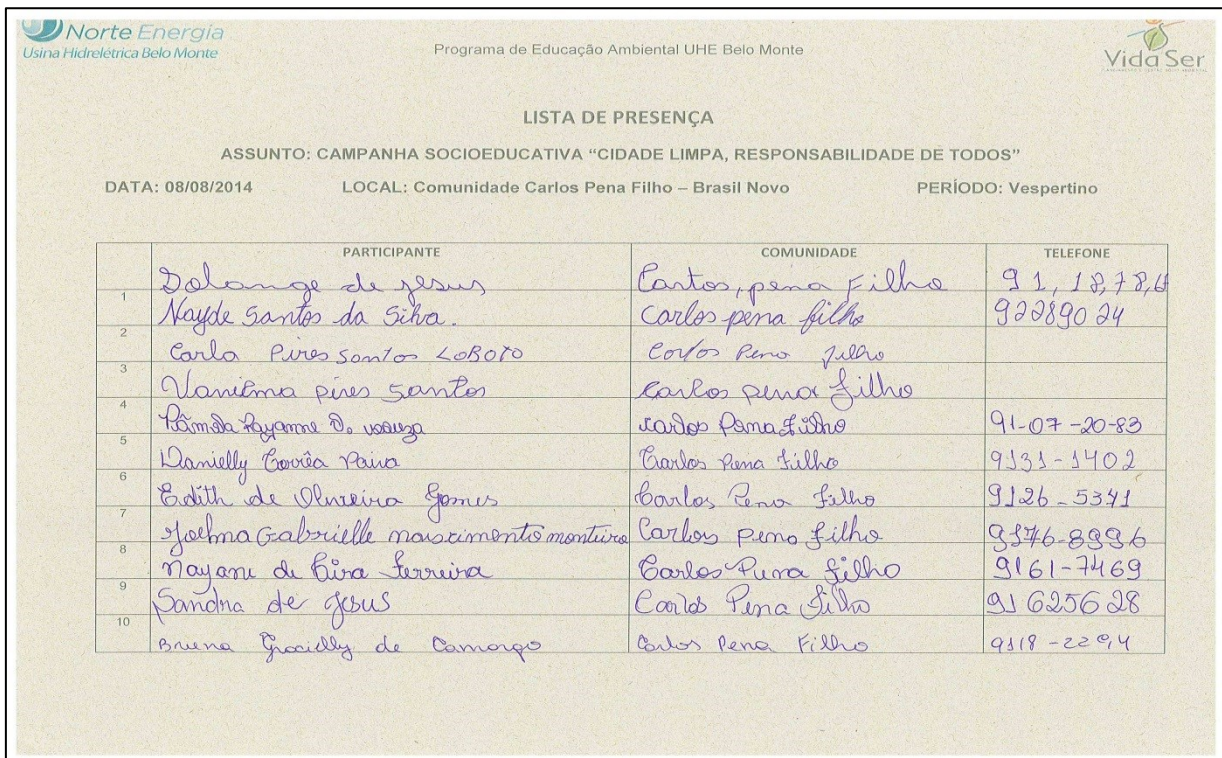 Norte Energia
Usina Hidrelétrica Belo Monte
Programa de Educação Ambiental UHE Belo Monte
Vida Ser
LISTA DE PRESENÇA
ASSUNTO: CAMPANHA SOCIOEDUCATIVA “CIDADE LIMPA, RESPONSABILIDADE DE TODOS”
DATA: 08/08/2014 LOCAL: Comunidade Carlos Pena Filho – Brasil Novo PERÍODO: Vespertino
PARTICIPANTE COMUNIDADE TELEFONE
Solange de Jesus Carlos, pena Filho 91, 18,78,6
1
Nayde Santos da Silva. Carlos pena filho 92289024
2
Carla Pires Santos LOBOTO Carlos Pena filho
3
Vanilma pires Santos Carlos pena filho
4
Pâmela Rayanne Carlos Pena Filho 91-07-20-83
5
Danielly Corrêa Paiva Carlos Pena Filho 9131-1402
6
Edith de Oliveira Gomes Carlos Pena Filho 9126-5341
7
Joelma Gabrielle nascimento monteiro Carlos pena filho 9176-8996
8
Nayani de Lira Ferreira Carlos Pena filho 9161-7469
9
Sandra de Jesus Carlos Pena Filho 91625628
10
Bruna Gracielly de Camargo Carlos Pena Filho